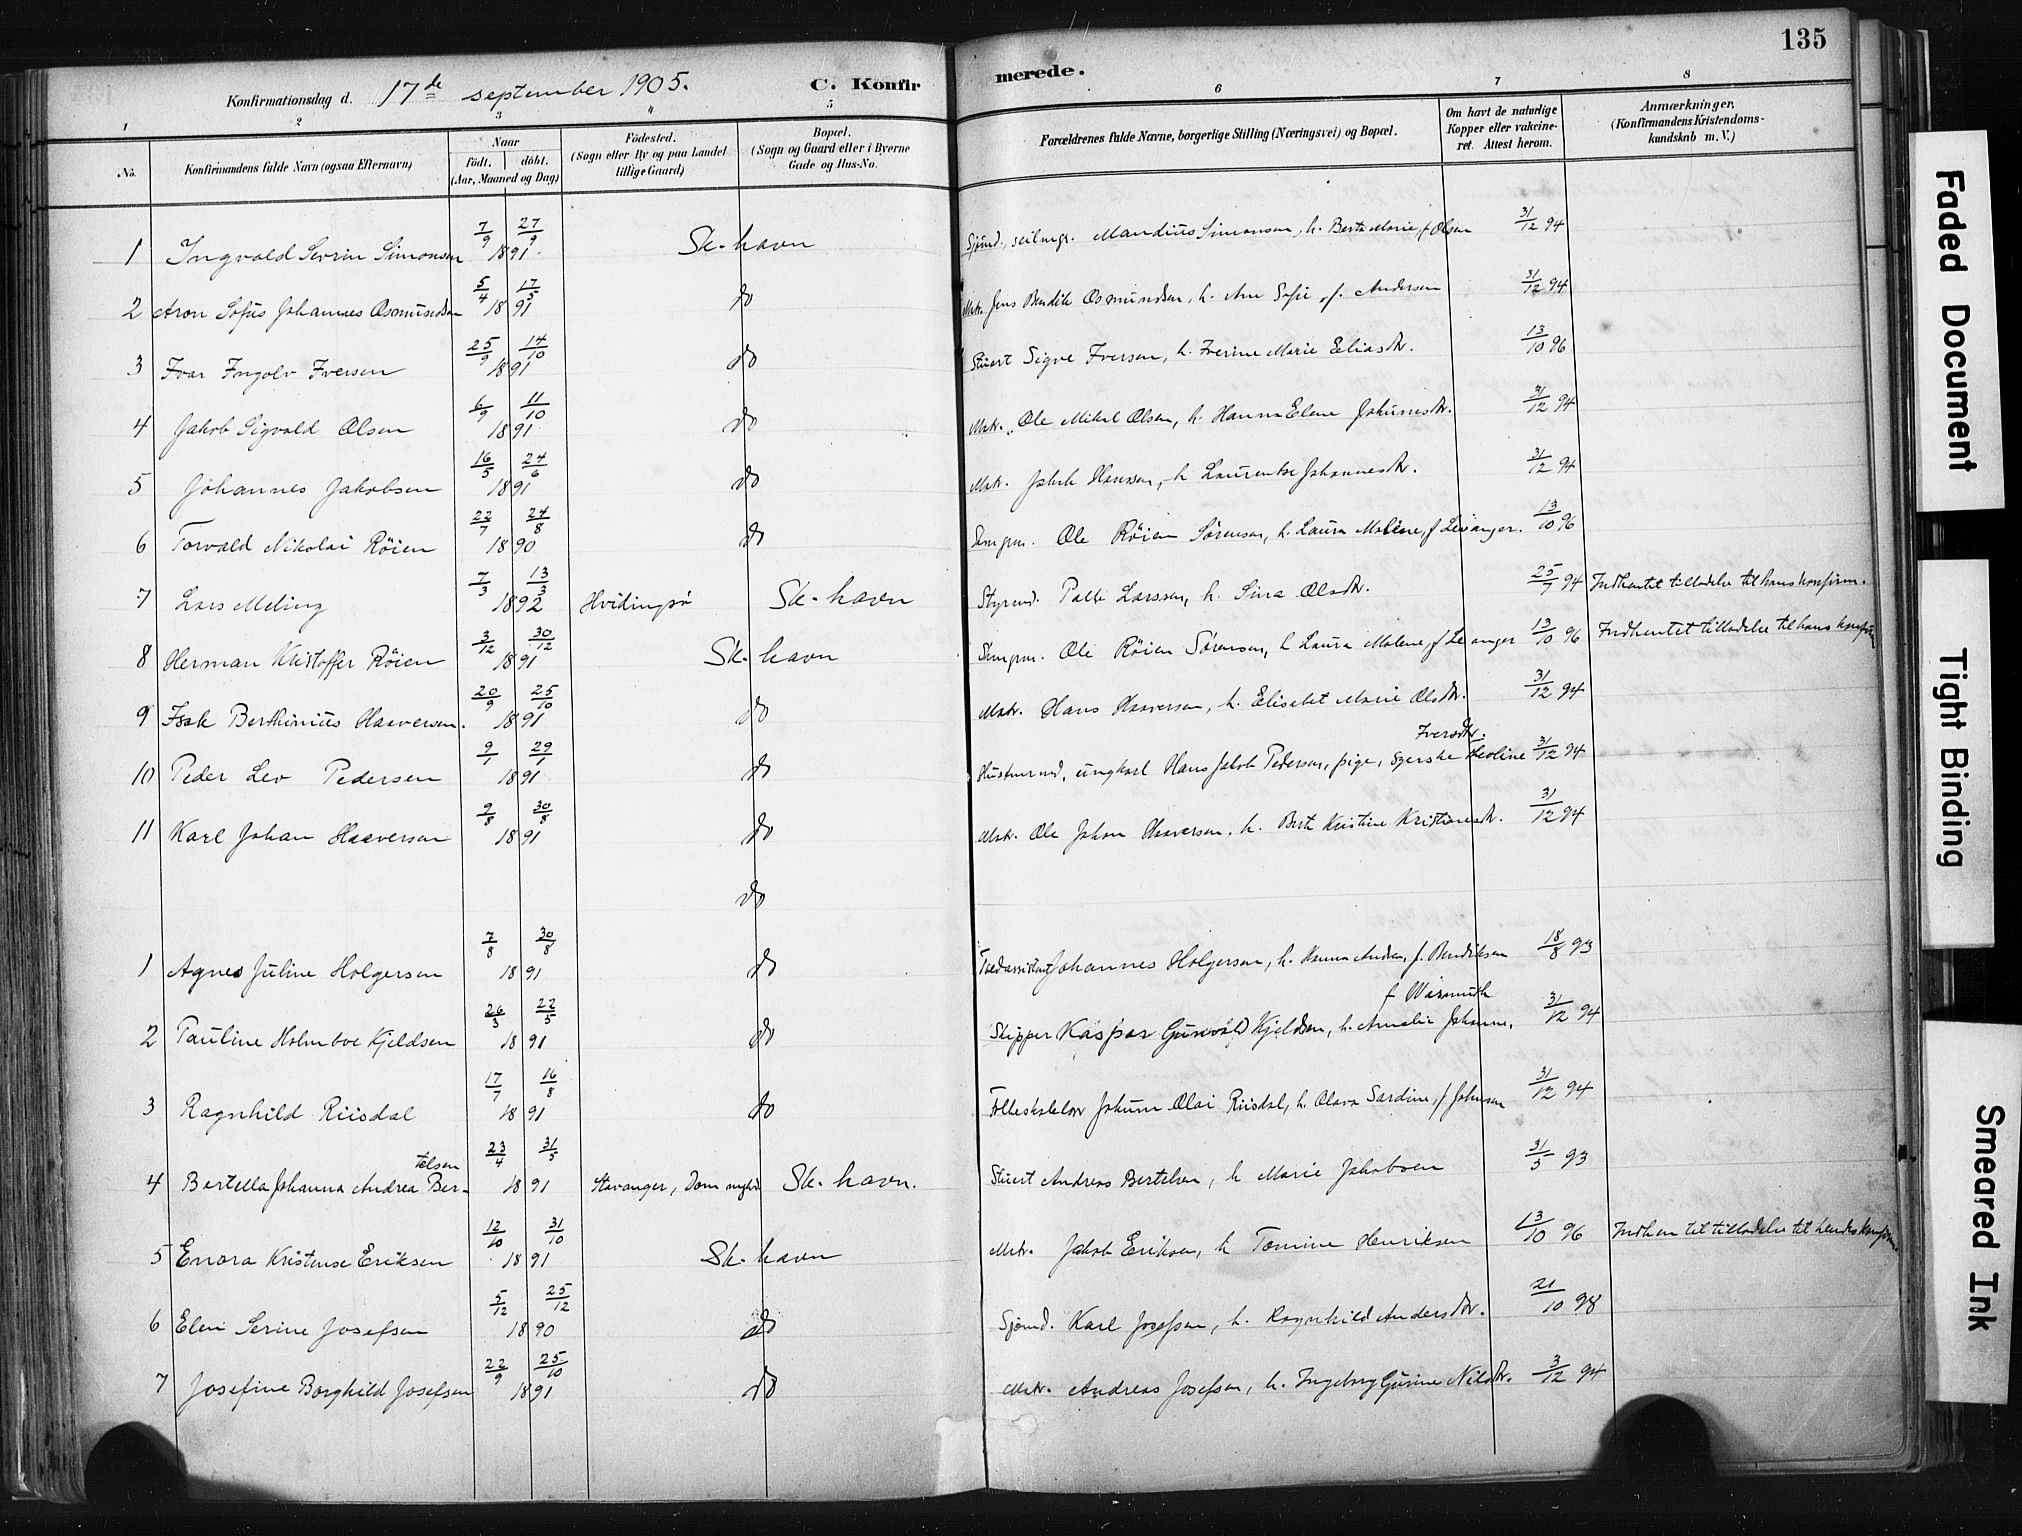 135
Konfirmationsdag d. 17de september 1905. C. Konfirmerede.
1 2 3 4 5 6 7 8
No.
Konfirmandens fulde Navn (ogsaa Efternavn)
Naar
födt. döbt.
(Aar, Maaned og Dag)
Födested.
(Sogn eller By og paa Landet
tillige Gaard)
Bopæl.
(Sogn og Gaard eller i Byerne
Gade og Hus-No.
Forældrenes fulde Navne, borgerlige Stilling (Næringsvei) og Bopæl.
Om havt de naturlige
Kopper eller vakcine-
ret. Attest herom.
Anmærkninger,
(Konfirmandens Kristendoms-
kundskab m. V.)
1 Ingvald Sevrin Simonsen 7/9 27/9 1891. Sk. havn Sjømd., seilmgr. Mandius Simonsen, h. Berta Marie, f. Olsen 31/12 94
2 Aron Sofus Johannes Osmundsen 5/4 17/5 1891 do Matr. Jens Bendik Osmundsen, h. Ane Sofie f. Andersen 31/12 94
3 Ivar Ingolv Iversen 25/9 14/10 1891 do Stuert Sigve Iversen, h. Iverine Marie Eliasdtr. 13/10 96
4 Jakob Sigvald Olsen 6/9 11/10 1891 do Matr. Ole Mikal Olsen, h. Hanna Elene Johannesdtr. 31/12 94
5 Johannes Jakobsen 16/5 24/6 1891 do Matr. Jakob Hansen, h. Laurentse Johannesdtr. 31/12 94
6 Torvald Nikolai Röien 22/7 24/8 1890 do Ole Röien Sørensen, h. Laura Malene, f. Levanger. 13/10 96
7 Lars Meling 7/3 13/3 1892 Hvidingsø Sk. havn Styrmd. Palle Larssen, h. Sina Olsdtr. 25/7 94 Indhentet tilladelse til hans konfirm.
8 Herman Kristoffer Röien 3/12 30/12 1891 Sk. havn Ole Röien Sørensen, h. Laura Malene, f. Levanger 13/10 96 Indhentet tilladelse til hans konfirm
9 Isak Berthinius Haaversen. 20/9 25/10 1891 do Matr. Hans Haaversen, h. Elisabet Marie Olsdtr. 31/12 94
Iversdtr.
10 Peder Lev Pedersen 9/1 29/1 1891 do Husmmd, ungkarl Hans Jakob Pedersen, pige, syerske Teoline 31/12 94
11 Karl Johan Haaversen 9/8 30/8 1891 do Matr. Ole Johan Haaversen, h. Berte Kristine Kristiansdtr. 31/12 94
do
1 Agnes Juline Holgersen 7/8 30/8 1891 do Toldassistent Johannes Holgersen, h. Hanna Andrea, f. Bendiksen 18/8 93
f Wasmuth
2 Pauline Holmboe Kjeldsen 26/3 22/5 1891 do Skipper Kaspar Gunvald Kjeldsen, h. Amalie Johanne, 31/12 94
3 Ragnhild Riisdal 17/7 16/8 1891 do Folkeskolelær Johan Olai Riisdal, h. Olava Sardine, f. Johnsen 31/12 94
telsen
4 Bertella Johanna Andrea Ber- 23/4 31/5 1891 Stavanger, Dom mgh. Sk. havn. Stuert Andreas Bertelsen, h Marie Jakobsen 31/5 93
5 Enora Kristense Eriksen 12/10 31/10 1891 Sk. havn Matr. Jakob Eriksen, h Tomine Henriksen 13/10 96 Indhentet tilladelse til hendes konfirm.
6 Elen Serine Josefsen 5/12 25/12 1890 do Sjømd. Karl Josefsen, h. Ragnhild Andersdtr. 21/10 98
7 Josefine Borghild Josefsen 22/9 25/10 1891 do Matr. Andreas Josefsen, h. Ingeborg Gurine Nilsdtr. 3/12 94
Faded Document
Tight Binding
Smeared Ink